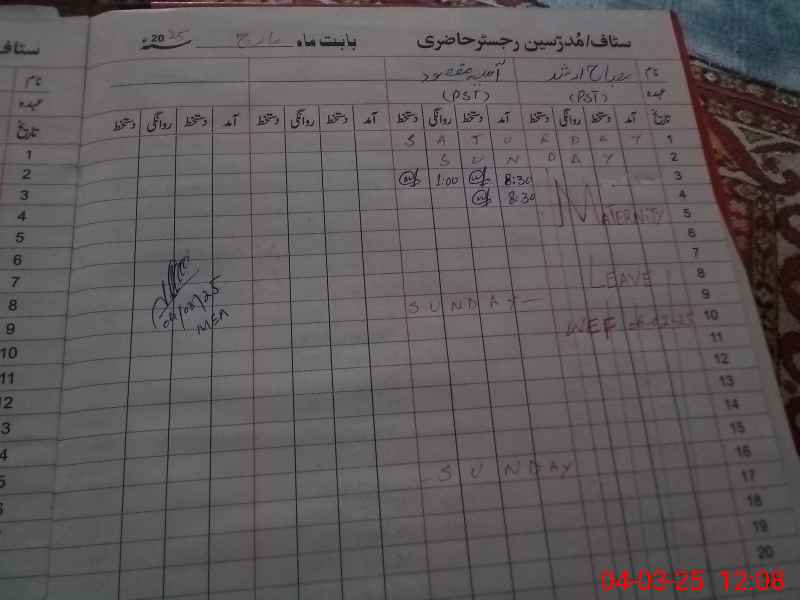 سٹاف/مُدرّسین رجسٹر حاضری بابت ماہ مارچ سنہ 2025ء
نام صباح ارشد آسیہ مقصود
عہدہ (PST) (PST)
تاریخ آمد دستخط روانگی دستخط آمد دستخط روانگی دستخط آمد دستخط روانگی دستخط آمد دستخط روانگی دستخط
1 SATURDAY
2 SUNDAY
3 8:30 1:00
4 8:30
5 MATERNITY
6
7
8 LEAVE
9 SUNDAY
10 WEF
11
12
13
14
15
16 SUNDAY
17
18
19
20
04/03/25
MEA
سٹاف
نام
عہدہ
تاریخ
1
2
3
4
5
6
7
8
9
10
11
12
04-03-25 12:08